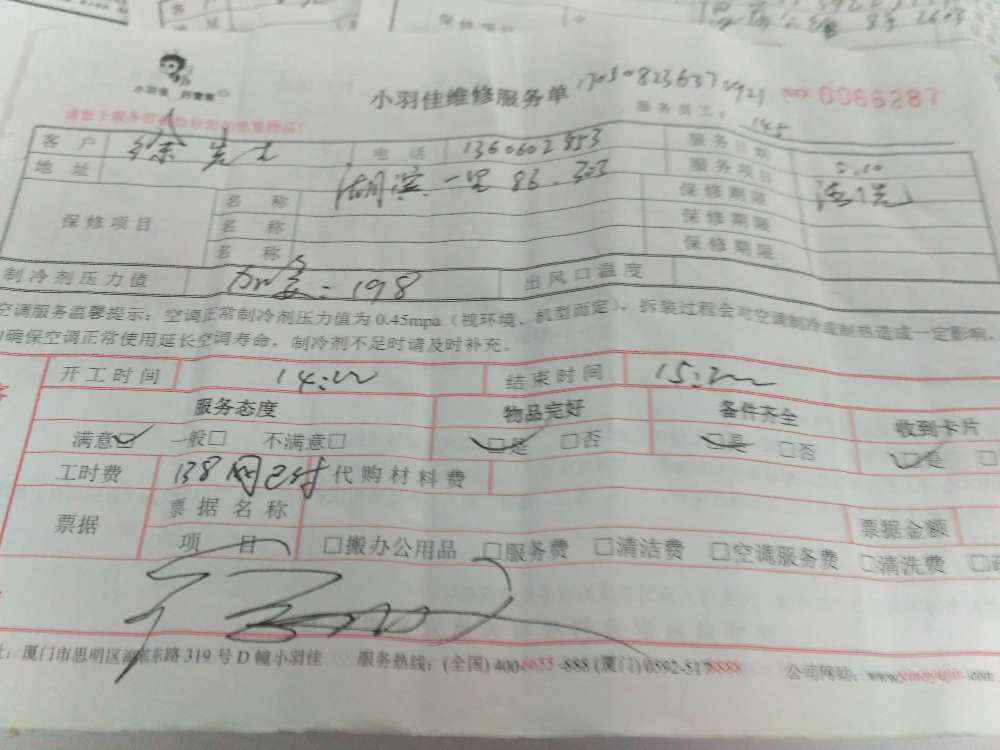 保修项目
小羽佳 好管家
小羽佳维修服务单 170308236370921 NO. 0066287
服务员工: 145
客户 徐先生 电话 服务日期 5.10
地址 湖滨一里 86.303 服务项目 清洗
保修项目 名称 保修期限
名称 保修期限
名称 保修期限
制冷剂压力值 出风口温度
空调服务温馨提示：空调正常制冷剂压力值为 0.45mpa（视环境、机型而定），拆装过程会对空调制冷或制热造成一定影响。
确保空调正常使用延长空调寿命，制冷剂不足时请及时补充。
开工时间 14:00 结束时间 15:00
服务态度 物品完好 备件齐全 收到卡片
满意☑ 一般□ 不满意□ ☑是 □否 ☑是 □否 ☑是 □
工时费 138网已付 代购材料费
票据 票据名称 票据金额
项目 □搬办公用品 □服务费 □清洁费 □空调服务费 □清洗费
址：厦门市思明区湖滨东路 319 号 D 幢小羽佳 服务热线：(全国) 400-6655-888 (厦门) 0592-5178888 公司网站：www.xiaoyujia.com